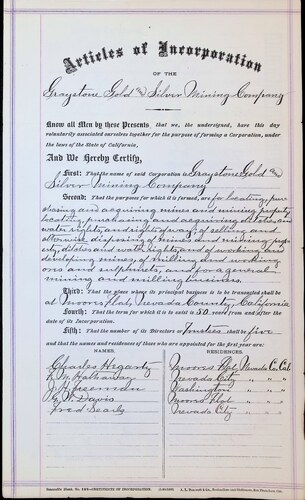 Articles of Incorporation
OF THE
Graystone Gold and Silver Mining Company
Know all Men by these Presents, That we, the undersigned, have this day
voluntarily associated ourselves together for the purpose of forming a Corporation, under
the laws of the State of California,
And We Hereby Certify,
First: That the name of said Corporation is Graystone Gold and
Silver Mining Company
Second: That the purposes for which it is formed, are for locating, pur-
chasing and acquiring mines and mining property
locating, purchasing and acquiring ditches and
water rights, and rights of way; of selling and
otherwise disposing of mines and mining prop-
erty, ditches and water rights; and of working and
developing mines, of milling and working
ores and sulphurets, and for a general
mining and milling business.
Third: That the place where its principal business is to be transacted is
at Moores Flat, Nevada County, California
Fourth: That the term for which it is to exist is 50 years from and after the
date of its Incorporation.
Fifth: That the number of its Directors or Trustees shall be five
and that the names and residences of those who are appointed for the first year are:
NAMES. RESIDENCES.
Charles Hegarty Moores Flat Nevada Co. Cal
Hathaway Nevada City " " "
Freeman Washington " " "
G. W. Davis Moores Flat " " "
Fred Searls Nevada City " " "